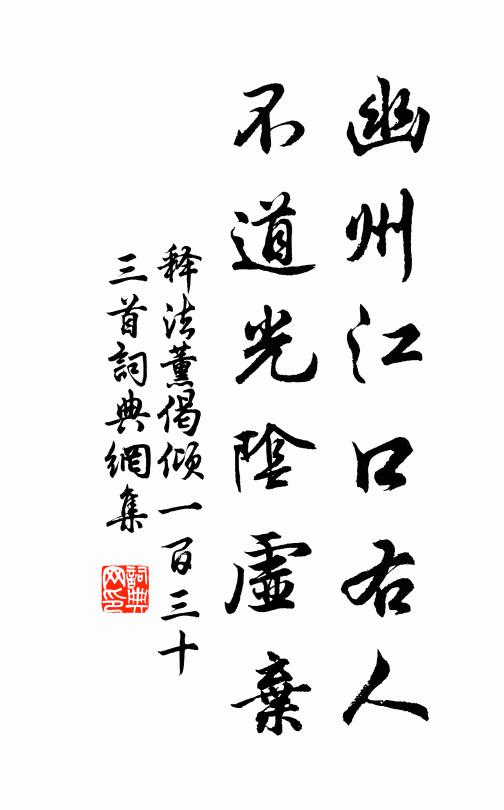 幽州江口石人
不道光陰虛棄
释法薰偈傾一百三十
三首詞典網集
詞典
网印